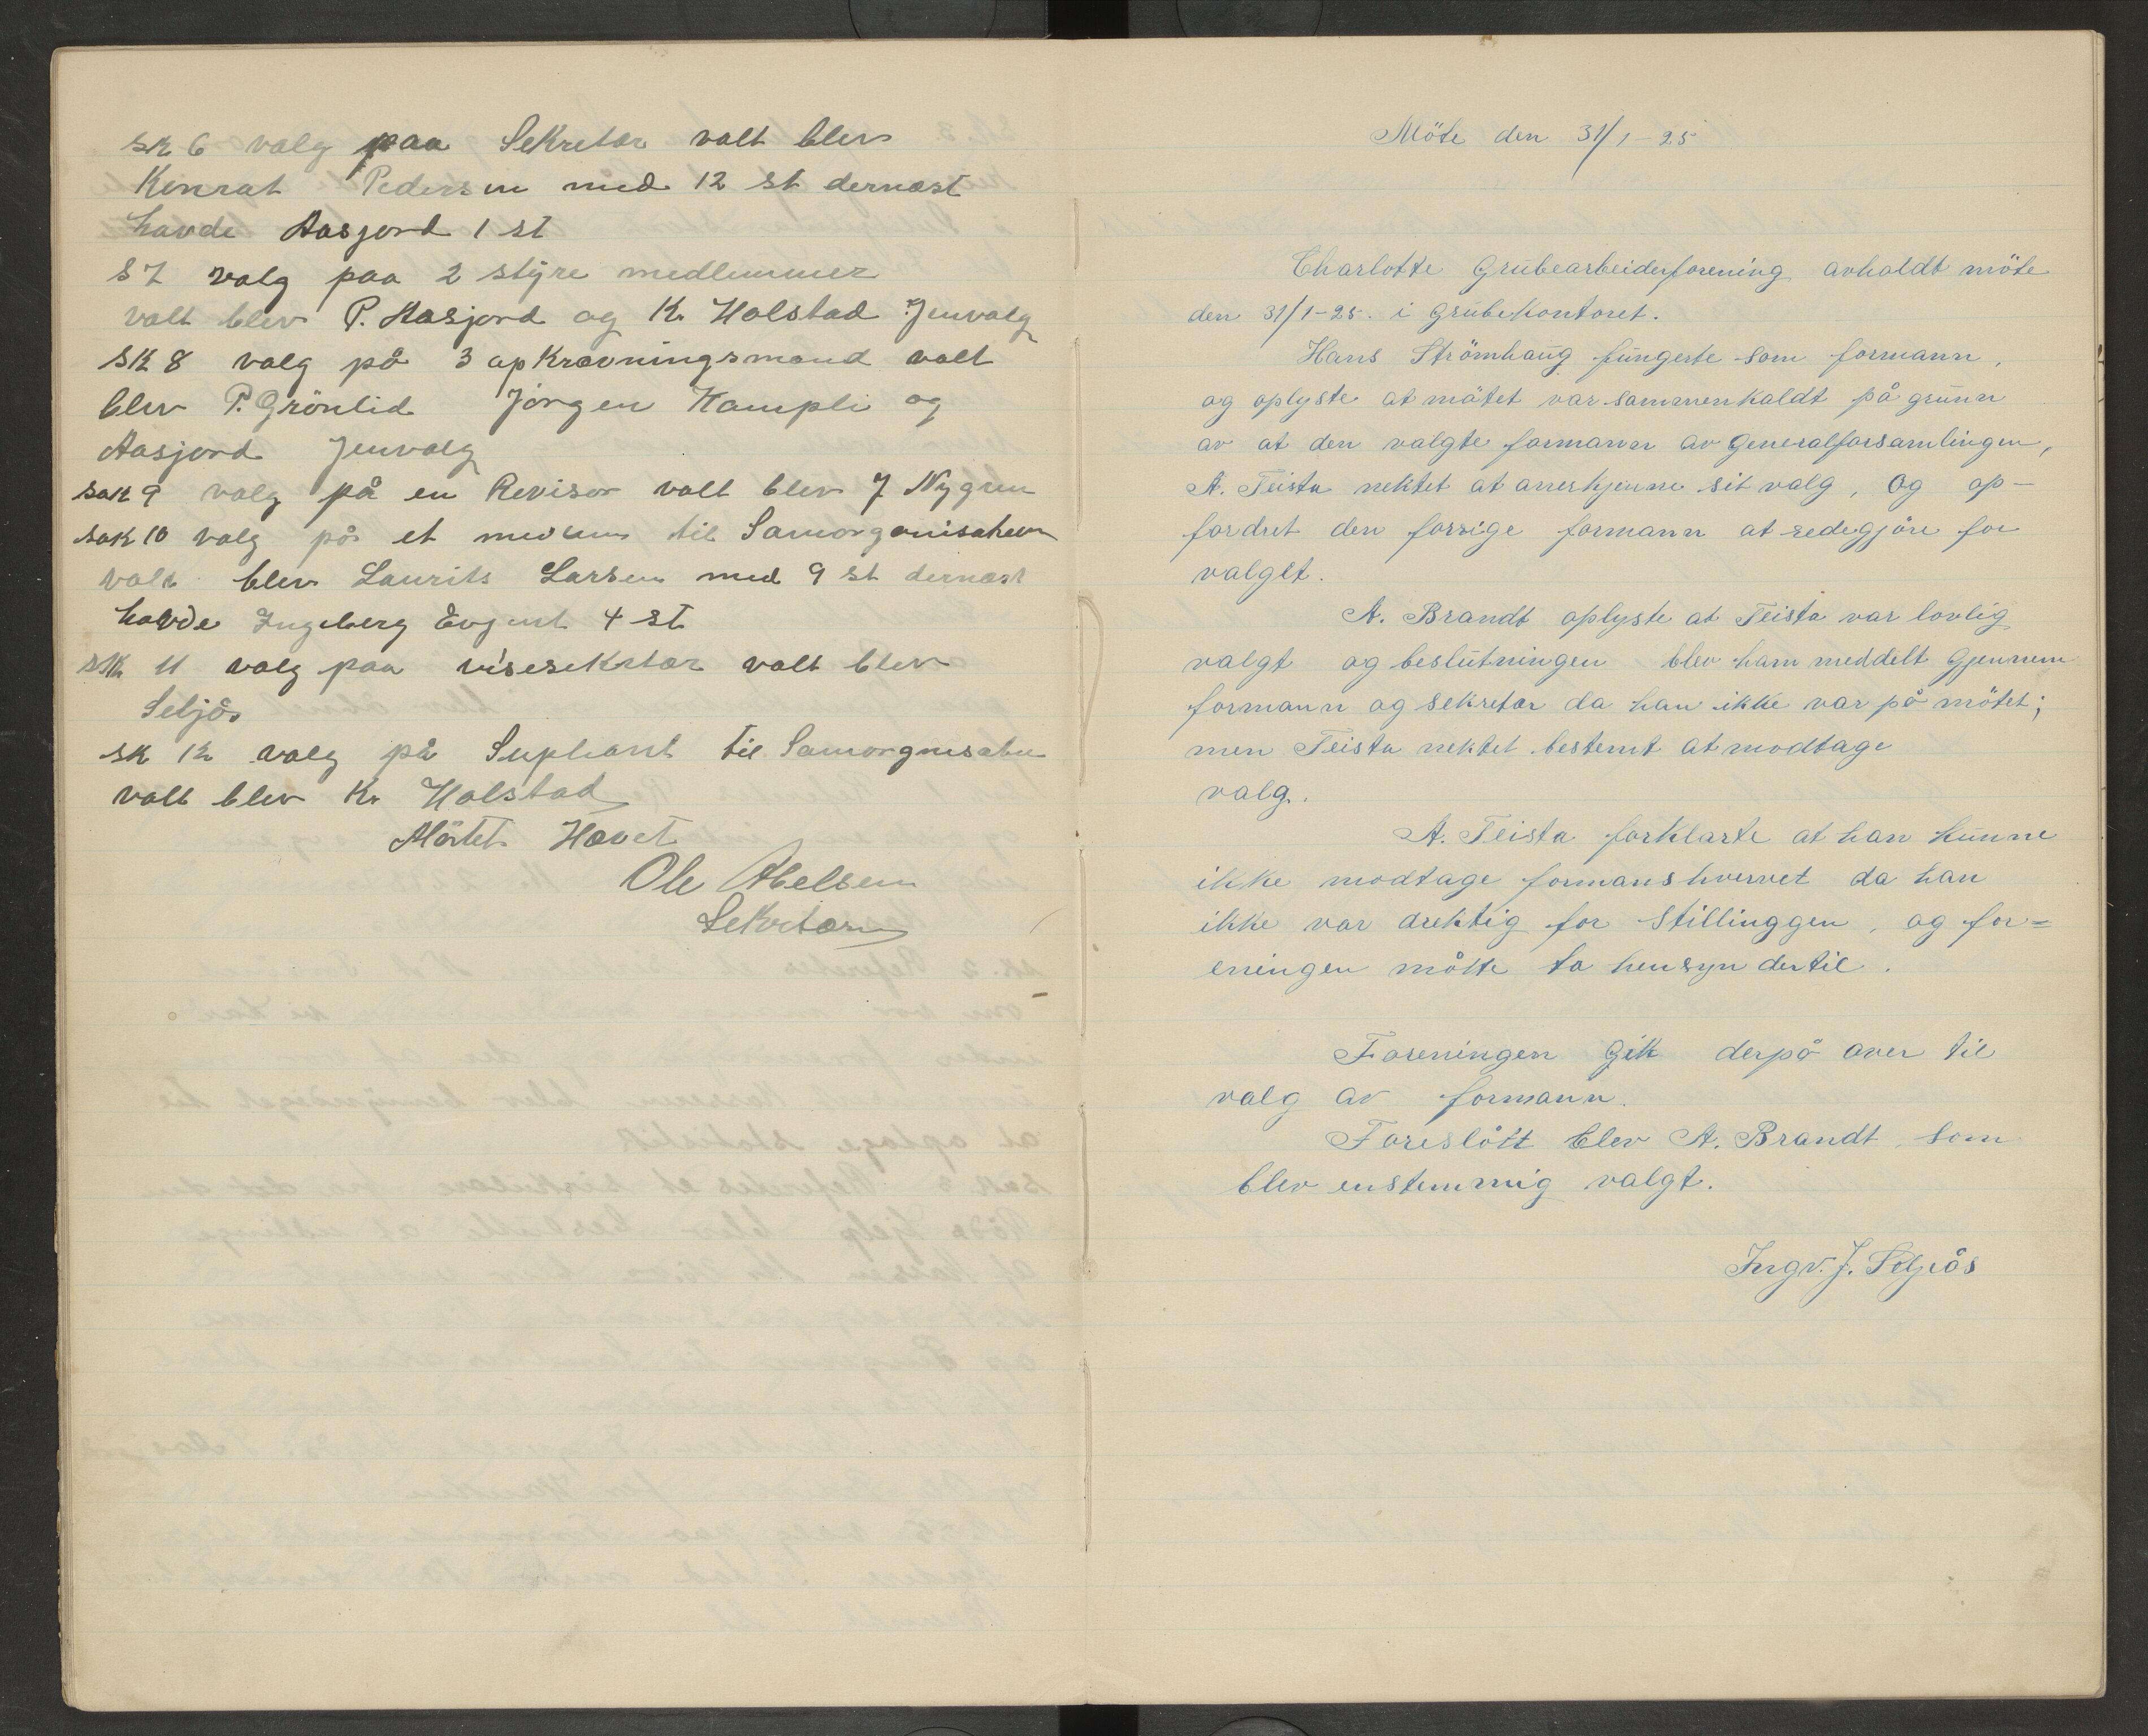 sk 6 valg paa Sekretær valt blev
Konrat Pedersen med 12 st dernæst
havde Aasjord 1 st
S 7 valg paa 2 styre medlemmer
valt blev P. Aasjord og K. Holstad Jenvalg
SK 8 valg på 3 opkrævningsmænd valt
blev P. Grönlid Jörgen Hampli og
Aasjord Jenvalg
sak 9 valg på en Revisor valt blev J Nygren
sak 10 valg på et til Samorganisationen
valt blev Laurits Larsen med 9 st dernæst
havde Ingeberg Evjent 4 st
sk 11 valg paa visesekretær valt blev
Seljås
sk 12 valg på Supleant til
valt blev K. Holstad
Mötet Hævet
Ole Abelsen
Sekretær
Möte den 31/1-25
Charlotte Grubearbeiderforening avholdt möte
den 31/1-25. i Grubekontoret.
Hans Strömhaug fungerte som formann,
og oplyste at mötet var sammenkaldt på grunn
av at den valgte formann av Generalforsamlingen,
A. Teista nektet at annerkjenne sit valg, Og op-
fordret den forrige formann at redegjöre for
valget.
A. Brandt oplyste at Teista var lovlig
valgt og beslutningen blev ham meddelt Gjennem
formann og sekretær da han ikke var på mötet;
men Teista nektet bestemt at modtage
valg.
A. Teista forklarte at han kunne
ikke modtage formanshvervet da han
ikke var drektig for Stillinggen, og for=
eningen måtte ta hensyn dertil.
Foreningen Gik derpå over til
valg av formann.
Foreslått blev A. Brandt, som
blev enstemmig valgt.
Ingv. J. Seljeås